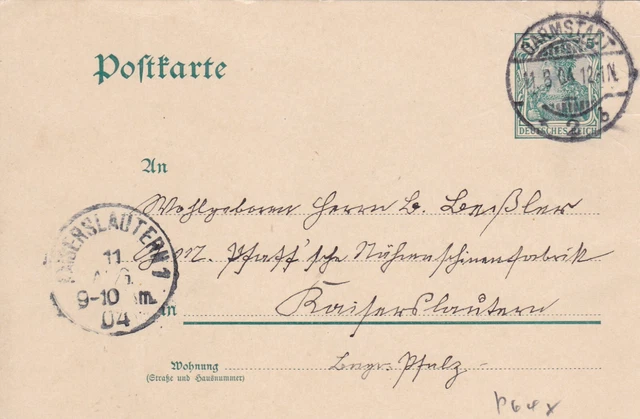 Postkarte
DARMSTADT
11.8.04.12-1N.
2 b
DEUTSCHES REICH
An
Wohlgeboren Herrn B. Beißler
G. M. Pfaff'sche Nähmaschinenfabrik
KAISERSLAUTERN 1
11
AUG.
9-10 m.
04
in
Kaiserslautern
Wohnung
(Straße und Hausnummer)
Bayr. Pfalz